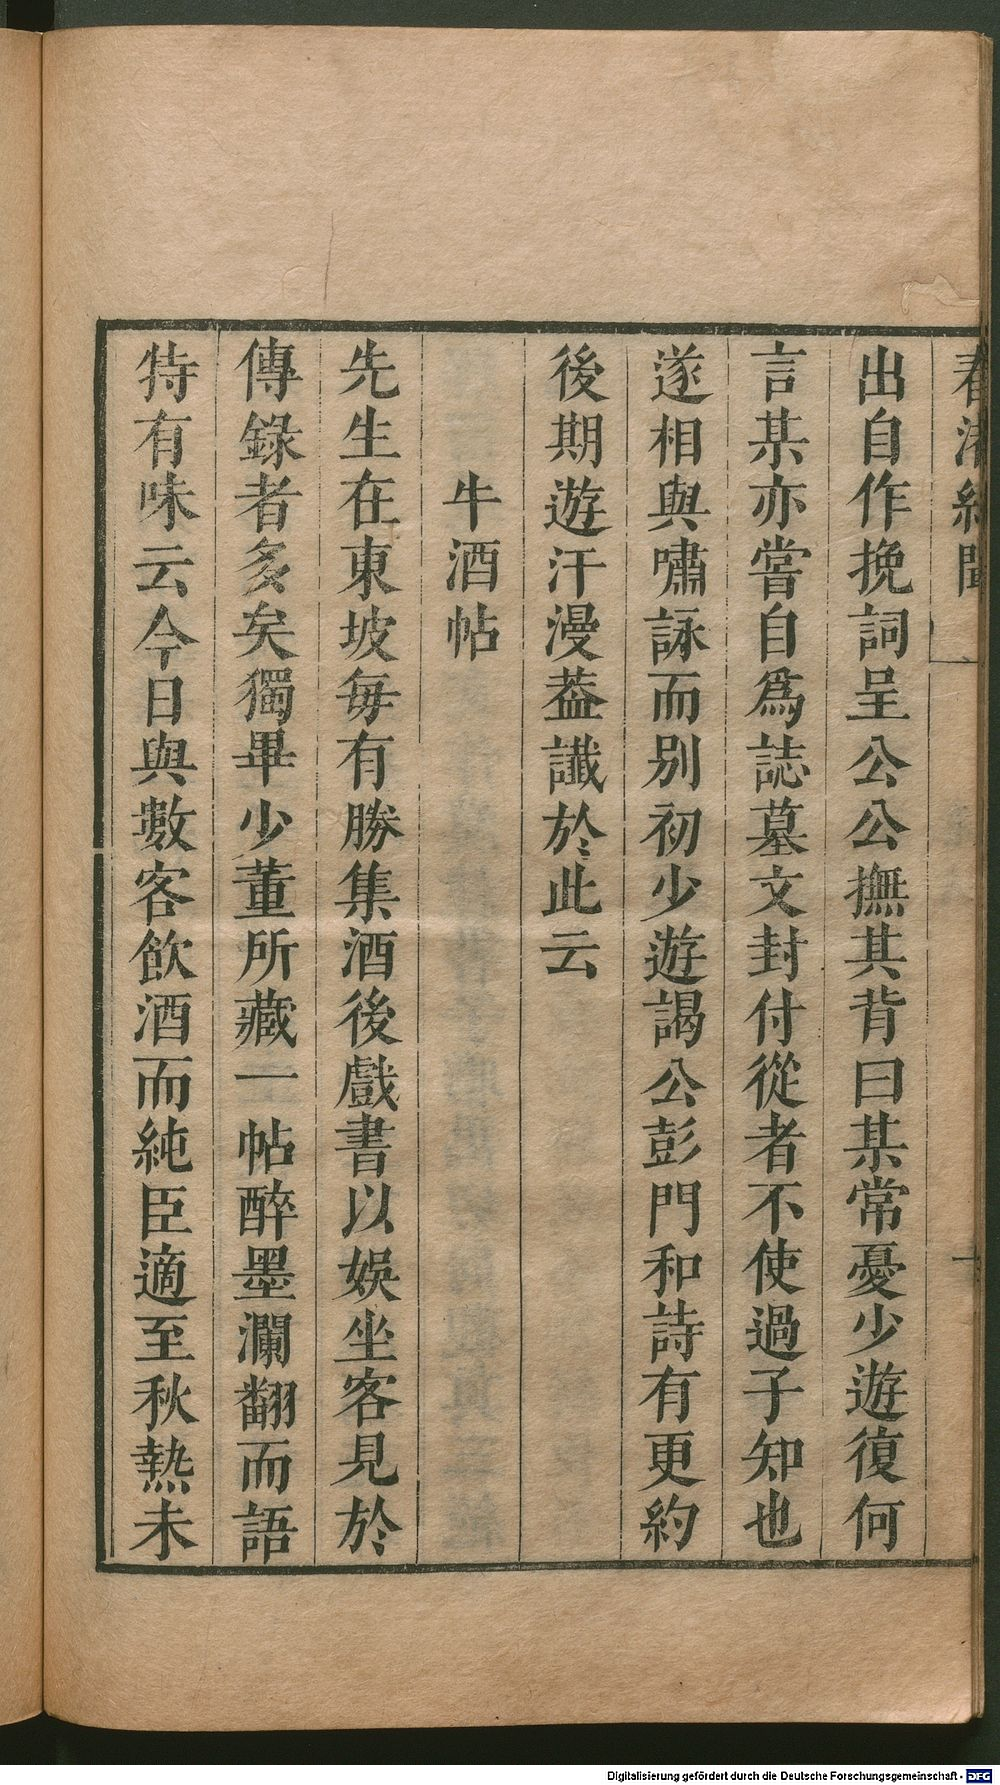 春渚紀聞
出自作挽詞呈公公撫其背曰某常憂少遊復何
言某亦嘗自爲誌墓文封付從者不使過子知也
遂相與嘯詠而別初少遊謁公彭門和詩有更約
後期遊汗漫葢讖於此云
牛酒帖
先生在東坡每有勝集酒後戲書以娛坐客見於
傳錄者多矣獨畢少董所藏一帖醉墨瀾翻而語
特有味云今日與數客飲酒而純臣適至秋熱未
Digitalisierung gefördert durch die Deutsche Forschungsgemeinschaft - DFG